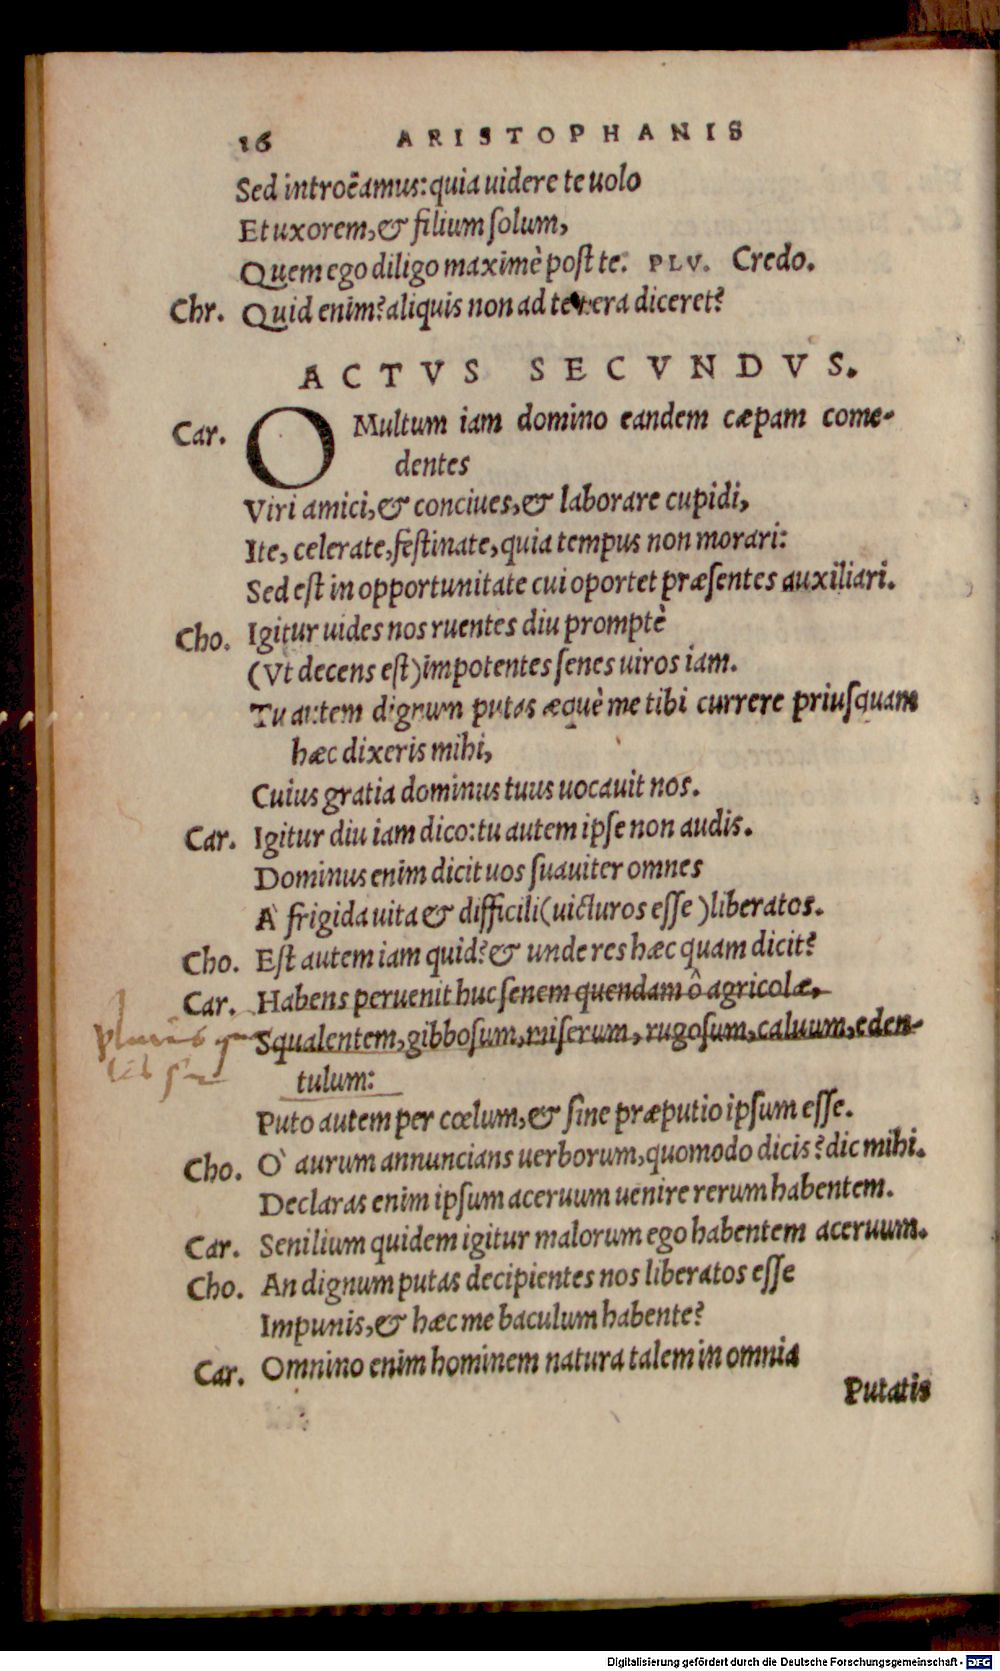 16 ARISTOPHANIS
Sed introëamus: quia uidere te uolo
Et uxorem, & filium solum,
Quem ego diligo maximè post te. PLV. Credo.
Chr. Quid enim? aliquis non ad te uera diceret?
ACTVS SECVNDVS.
Car. O Multum iam domino eandem cæpam come-
dentes
Viri amici, & conciues, & laborare cupidi,
Ite, celerate, festinate, quia tempus non morari:
Sed est in opportunitate cui oportet præsentes auxiliari.
Cho. Igitur uides nos ruentes diu promptè
(Vt decens est) impotentes senes uiros iam.
Tu autem dignum putas æquè me tibi currere priusquam
hæc dixeris mihi,
Cuius gratia dominus tuus uocauit nos.
Car. Igitur diu iam dico: tu autem ipse non audis.
Dominus enim dicit uos suauiter omnes
A frigida uita & difficili (uicturos esse) liberatos.
Cho. Est autem iam quid? & unde res hæc quam dicit?
Car. Habens peruenit huc senem quendam ô agricolæ,
Squalentem, gibbosum, miserum, rugosum, caluum, eden-
tulum:
Puto autem per cœlum, & sine præputio ipsum esse.
Cho. O` aurum annuncians uerborum, quomodo dicis? dic mihi.
Declaras enim ipsum aceruum uenire rerum habentem.
Car. Senilium quidem igitur malorum ego habentem aceruum.
Cho. An dignum putas decipientes nos liberatos esse
Impunis, & hæc me baculum habente?
Car. Omnino enim hominem natura talem in omnia
Putatis
Digitalisierung gefördert durch die Deutsche Forschungsgemeinschaft - DFG